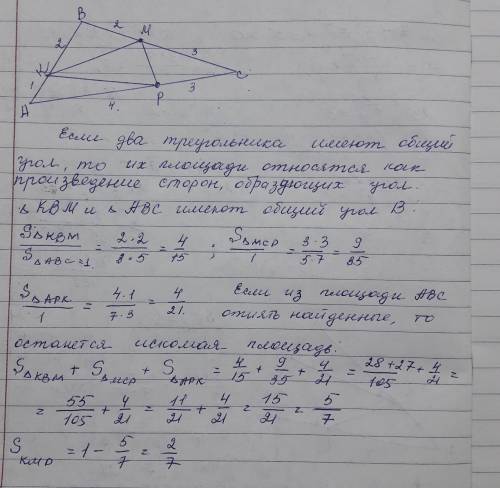 B
2
M
2
3
K
C
1
3
P
A
4.
Если два треугольника имеют общий
угол, то их площади относятся как
произведение сторон, образующих угол.
Δ KBM и Δ ABC имеют общий угол B.
SΔKBM / SΔABC=1 = 2·2 / 3·5 = 4/15 ; SΔMCP / 1 = 3·3 / 5·7 = 9/35
SΔAPK / 1 = 4·1 / 7·3 = 4/21. Если из площади ABC
отнять найденные, то
останется искомая площадь:
SΔKBM + SΔMCP + SΔAPK = 4/15 + 9/35 + 4/21 = 28+27 / 105 + 4/21 =
= 55/105 + 4/21 = 11/21 + 4/21 = 15/21 = 5/7
SKMP = 1 - 5/7 = 2/7